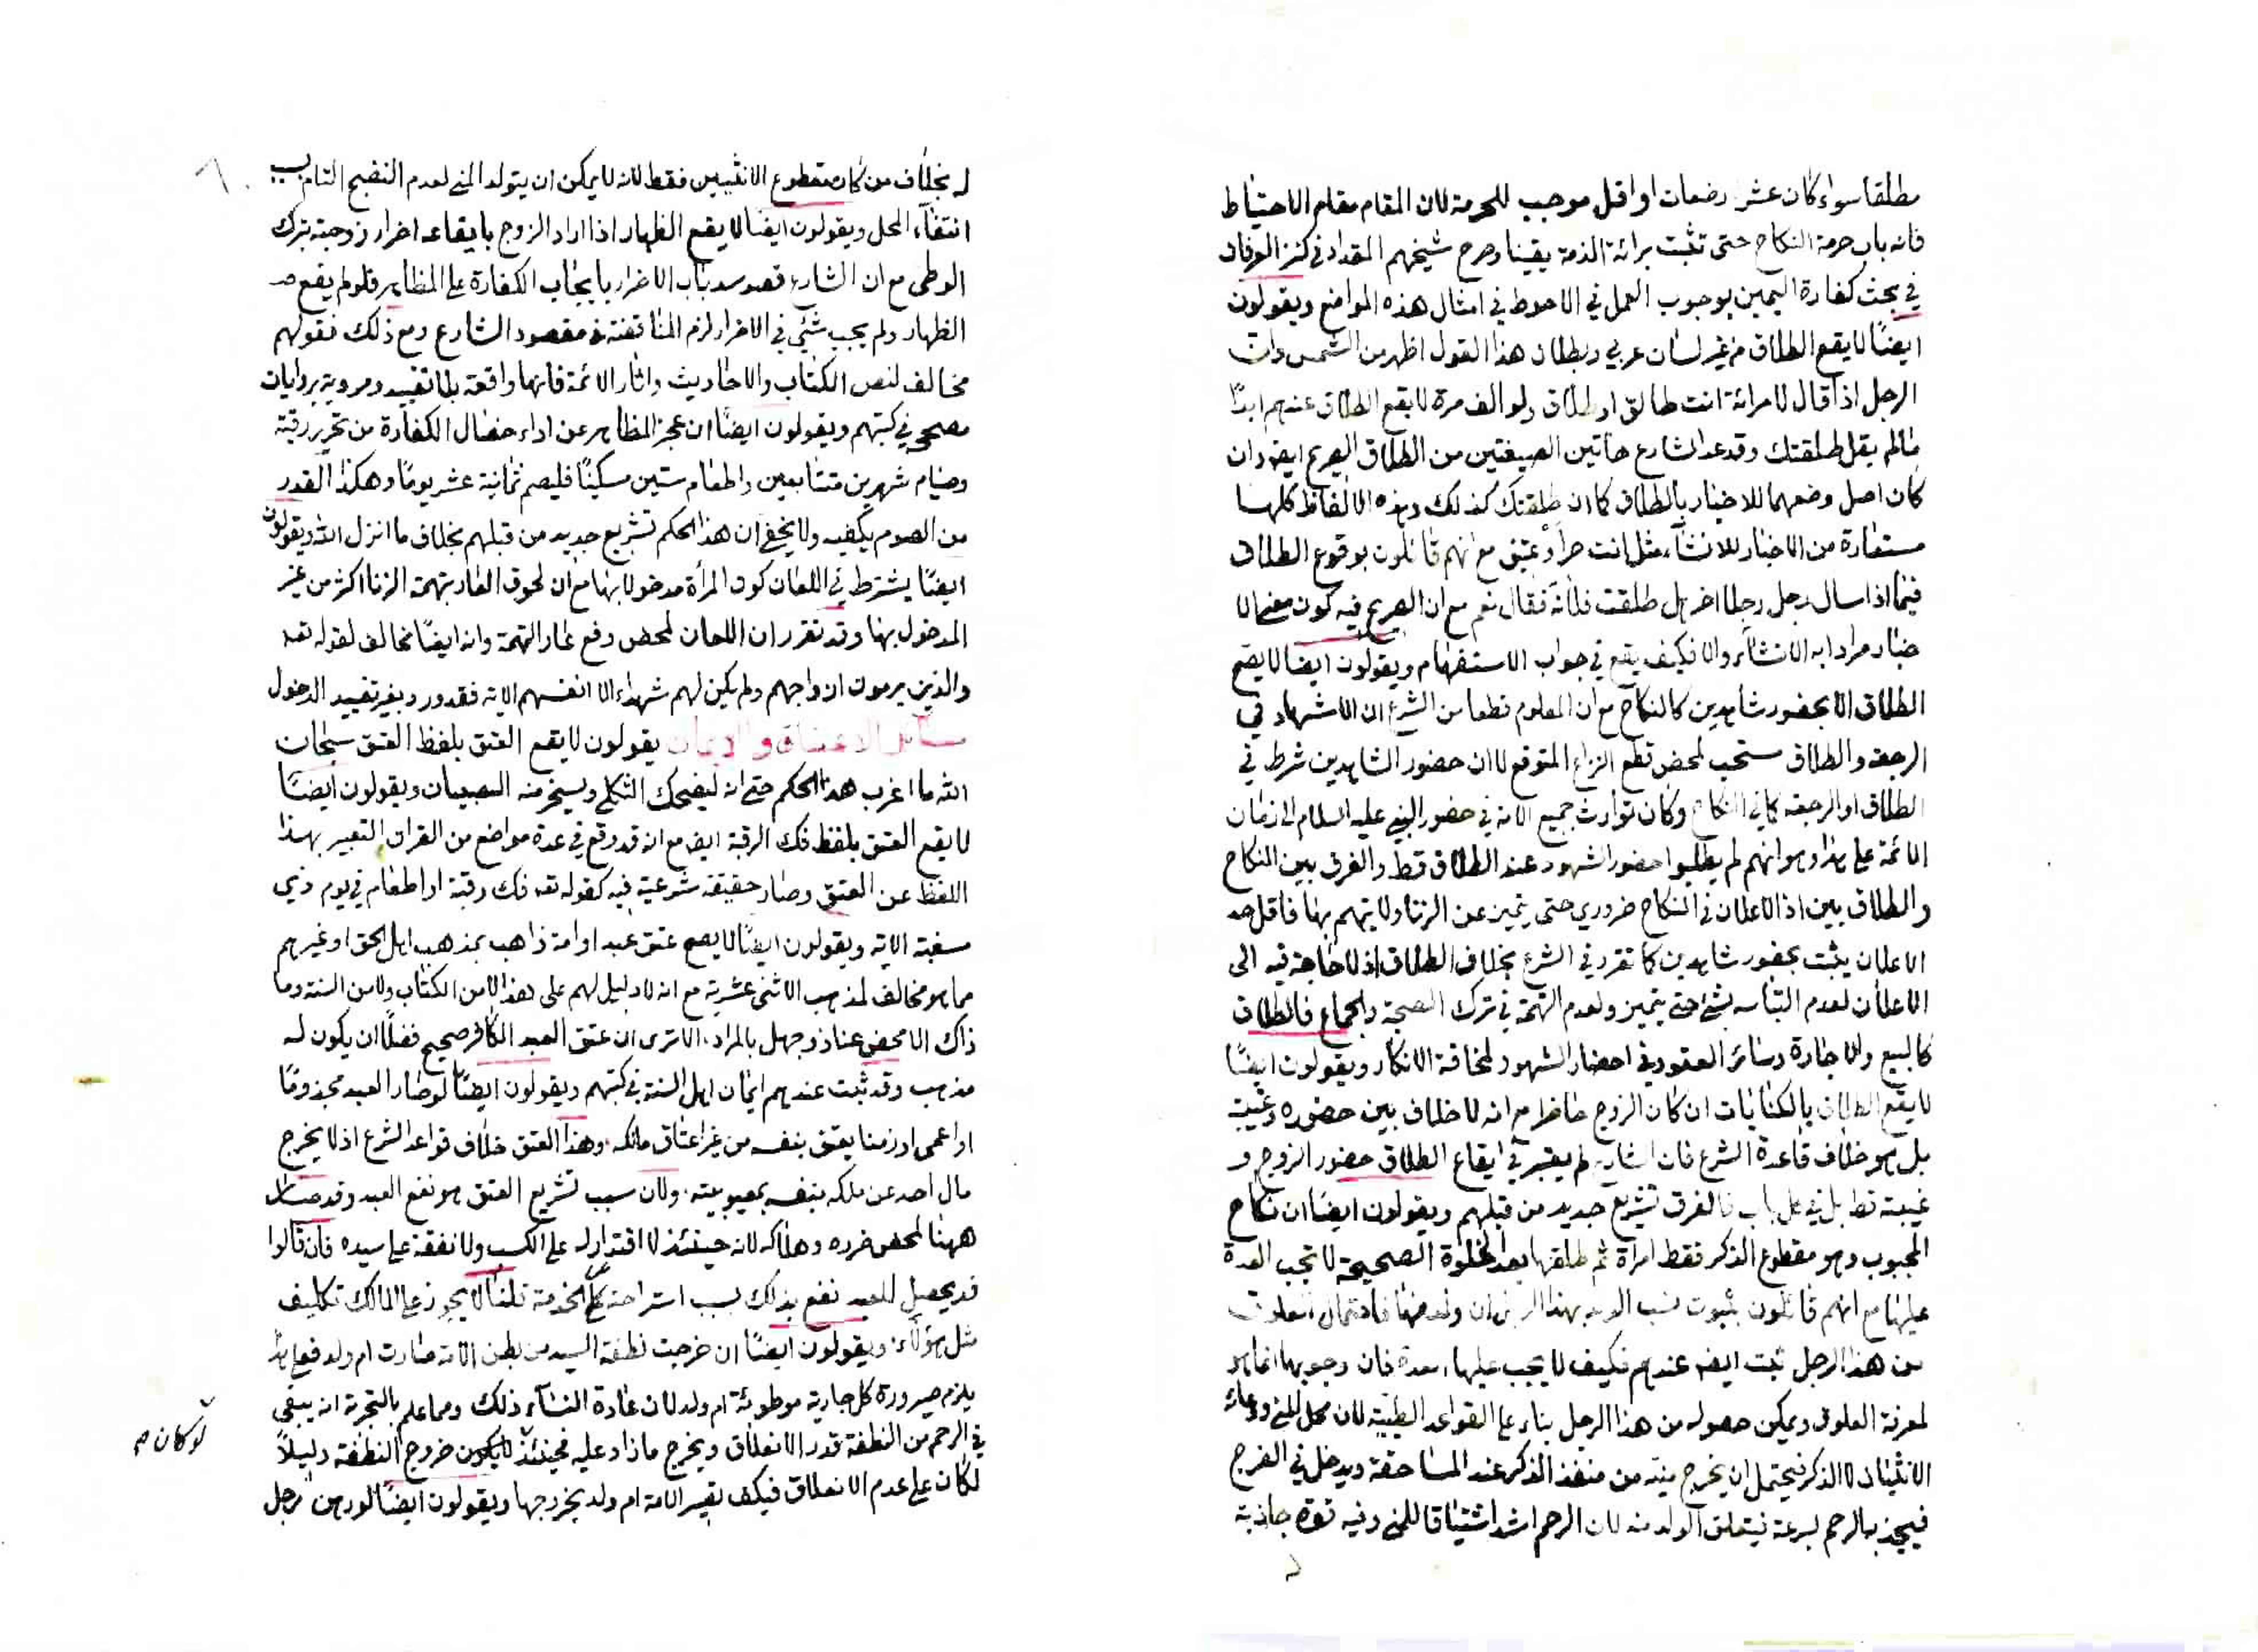 مطلقا سواء كان عشر رضعات او اقل موجب للحرمة لان المقام مقام الاحتياط
فانه باب حرمة النكاح حتى تثبت برائة الذمة يقينا وصرح شيخهم المقداد في كنز العرفان
في بحث كفارة اليمين بوجوب العمل في الاحوط في امثال هذه المواضع ويقولون
ايضًا لا يقع الطلاق من غير لسان عربي وبطلان هذا القول اظهر من الشمس وان
الرجل اذا قال لامرائة انت طالق او طلاق ولو الف مرة لا يقع الطلاق عندهم ابدًا
ما لم يقل طلقتك وقد عد الشارع هاتين الصيغتين من الطلاق الصريح ايضه وان
كان اصل وضعهما للاخبار بالطلاق كما ان طلقتك كذلك وهذه الالفاظ كلها
مستعارة من الاخبار للانشآء مثل انت حر او عتيق مع انهم قائلون بوقوع الطلاق
فيما اذا سال رجل رجلا اخر هل طلقت فلانة فقال نعم مع ان الصريح فيه كون معنى الا
خبار مرادا به الانشآء والا فكيف يقع في جواب الاستفهام ويقولون ايضا لا يصح
الطلاق الا بحضور شاهدين كالنكاح مع ان المعلوم قطعا من الشرع ان الاشهاد في
الرجعة والطلاق مستحب لمحض قطع النزاع المتوقع لا ان حضور الشاهدين شرط في
الطلاق او الرجعة كما في النكاح وكان توارث جميع الامة في حضور النبي عليه السلام الى زمان
الائمة على هذا وهو انهم لم يطلبوا حضور الشهود عند الطلاق قط والفرق بين النكاح
والطلاق بين اذ الاعلان في النكاح ضروري حتى يتميز عن الزنا ولا يتهم بها فاقل حد
الاعلان يثبت بحضور شاهدين كما تقرر في الشرع بخلاف الطلاق اذ لا حاجة فيه الى
الاعلان لعدم التباسه بشئ حتى يتميز ولعدم التهمة في ترك الصحبة والجماع فالطلاق
كالبيع والاجارة وسائر العقود في احضار الشهود لمخافة الانكار ويقولون ايضًا
لا يقع الطلاق بالكنايات ان كان الزوج حاضرا مع انه لا خلاف بين حضوره وغيبته
بل هو خلاف قاعدة الشرع فان الشارع لم يعتبر في ايقاع الطلاق حضور الزوج و
غيبته قط بل في كل باب فالفرق تشريع جديد من قبلهم ويقولون ايضًا ان نكاح
المجبوب وهو مقطوع الذكر فقط امراة ثم طلقها بعد الخلوة الصحيحة لا تجب العدة
عليها مع انهم قائلون بثبوت نسب الولد بهذا ان ولد فاحتمال العلوق
من هذا الرجل ثبت ايضه عندهم فكيف لا يجب عليها العدة فان وجوبها انما هو
لمعرفة العلوق ويمكن حصوله من هذا الرجل بناء على القواعد الطبية لان محل المني ووعائه
الانثيان لا الذكر فيحتمل ان يخرج منيه من منفذ الذكر عند المساحقة ويدخل في الفرج
فيجذبه الرحم بسرعة فيتعلق الولد منه لان الرحم اشد اشتياقا للمني وفيه قوة جاذبة
له بخلاف من كان مقطوع الانثيين فقط لانه لا يمكن ان يتولد المني لعدم النضج التام بسبب
انتفآء المحل ويقولون ايضًا لا يقع الظهار اذا اراد الزوج بايقاعه اضرار زوجته بترك
الوطى مع ان الشارع قصد سد باب الاضرار بايجاب الكفارة على المظاهر فلو لم يقع
الظهار ولم يجب شئي في الاضرار لزم المناقضة في مقصود الشارع ومع ذلك فقولهم
مخالف لنص الكتاب والاحاديث واثار الائمة فانها واقعة بلا تقييد ومروية بروايات
صحيحة في كتبهم ويقولون ايضًا ان عجز المظاهر عن اداء خصال الكفارة من تحرير رقبة
وصيام شهرين متتابعين واطعام ستين مسكينًا فليصم ثمانية عشر يومًا وهكذا القدر
من الصوم يكفيه ولا يخفى ان هذا الحكم تشريع جديد من قبلهم بخلاف ما انزل الله ويقولون
ايضًا يشترط في اللعان كون المرأة مدخولا بها مع ان لحوق العار بتهمة الزنا اكثر من غير
المدخول بها وقد تقرر ان اللعان لمحض دفع عار التهمة وانه ايضًا مخالف لقوله تعه
والذين يرمون ازواجهم ولم يكن لهم شهداء الا انفسهم الاية فقد ورد بغير تقييد الدخول
مسائل الاعتاق والايمان يقولون لا يقع العتق بلفظ العتق سبحان
الله ما اغرب هذا الحكم حتى انه ليضحك الثكلى ويسخر منه الصبيان ويقولون ايضًا
لا يقع العتق بلفظ فك الرقبة ايضه مع انه قد وقع في عدة مواضع من القران التعبير بهذا
اللفظ عن العتق وصار حقيقة شرعية فيه كقوله تعه فك رقبة او اطعام في يوم ذي
مسغبة الاية ويقولون ايضًا لا يصح عتق عبد او امة ذاهب بمذهب اهل الحق او غيرهم
مما هو مخالف لمذهب الاثنى عشرية مع انه لا دليل لهم على هذا لا من الكتاب ولا من السنة وما
ذاك الا محض عناد وجهل بالمراد الا ترى ان عتق العبد الكافر صحيح فضلًا ان يكون له
مذهب وقد ثبت عندهم ايمان اهل السنة في كتبهم ويقولون ايضًا لو صار العبد مجذومًا
او اعمى او زمنا يعتق بنفسه من غير اعتاق مالكه وهذا العتق خلاف قواعد الشرع اذ لا يخرج
مال احد عن ملكه بنفسه بمعيوبيته ولان سبب تشريع العتق هو نفع العبد وقد صار
ههنا لمحض ضرره وهلاكه لانه حينئذ لا اقتدار له على الكسب ولا نفقة على سيده فان قالوا
قد يحصل للعبد نفع بذلك بسبب استراحته عن الخدمة قلنا لا يجوز على المالك تكليف
مثل هؤلآء ويقولون ايضًا ان خرجت نطفة السيد من بطن الامة صارت ام ولد فعلى هذا
يلزم صيرورة كل جارية موطوئة ام ولد لان عادة النسآء ذلك ومما علم بالتجربة انه يبقى
في الرحم من النطفة قدر الانعلاق ويخرج ما زاد عليه فحينئذ لا يكون خروج النطفة دليلًا
لو كان م
لكان على عدم الانعلاق فكيف تصير الامة ام ولد بخروجها ويقولون ايضًا لو رهن رجل